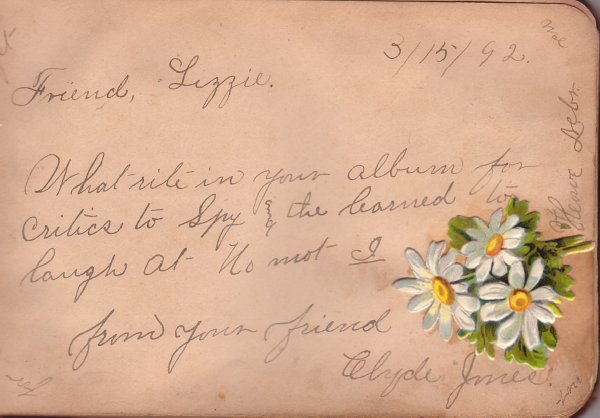 3/15/92.
Friend, Lizzie.
What rite in your album for
critics to Spy & the learned to
laugh at No not I
from your friend
Clyde Jones.